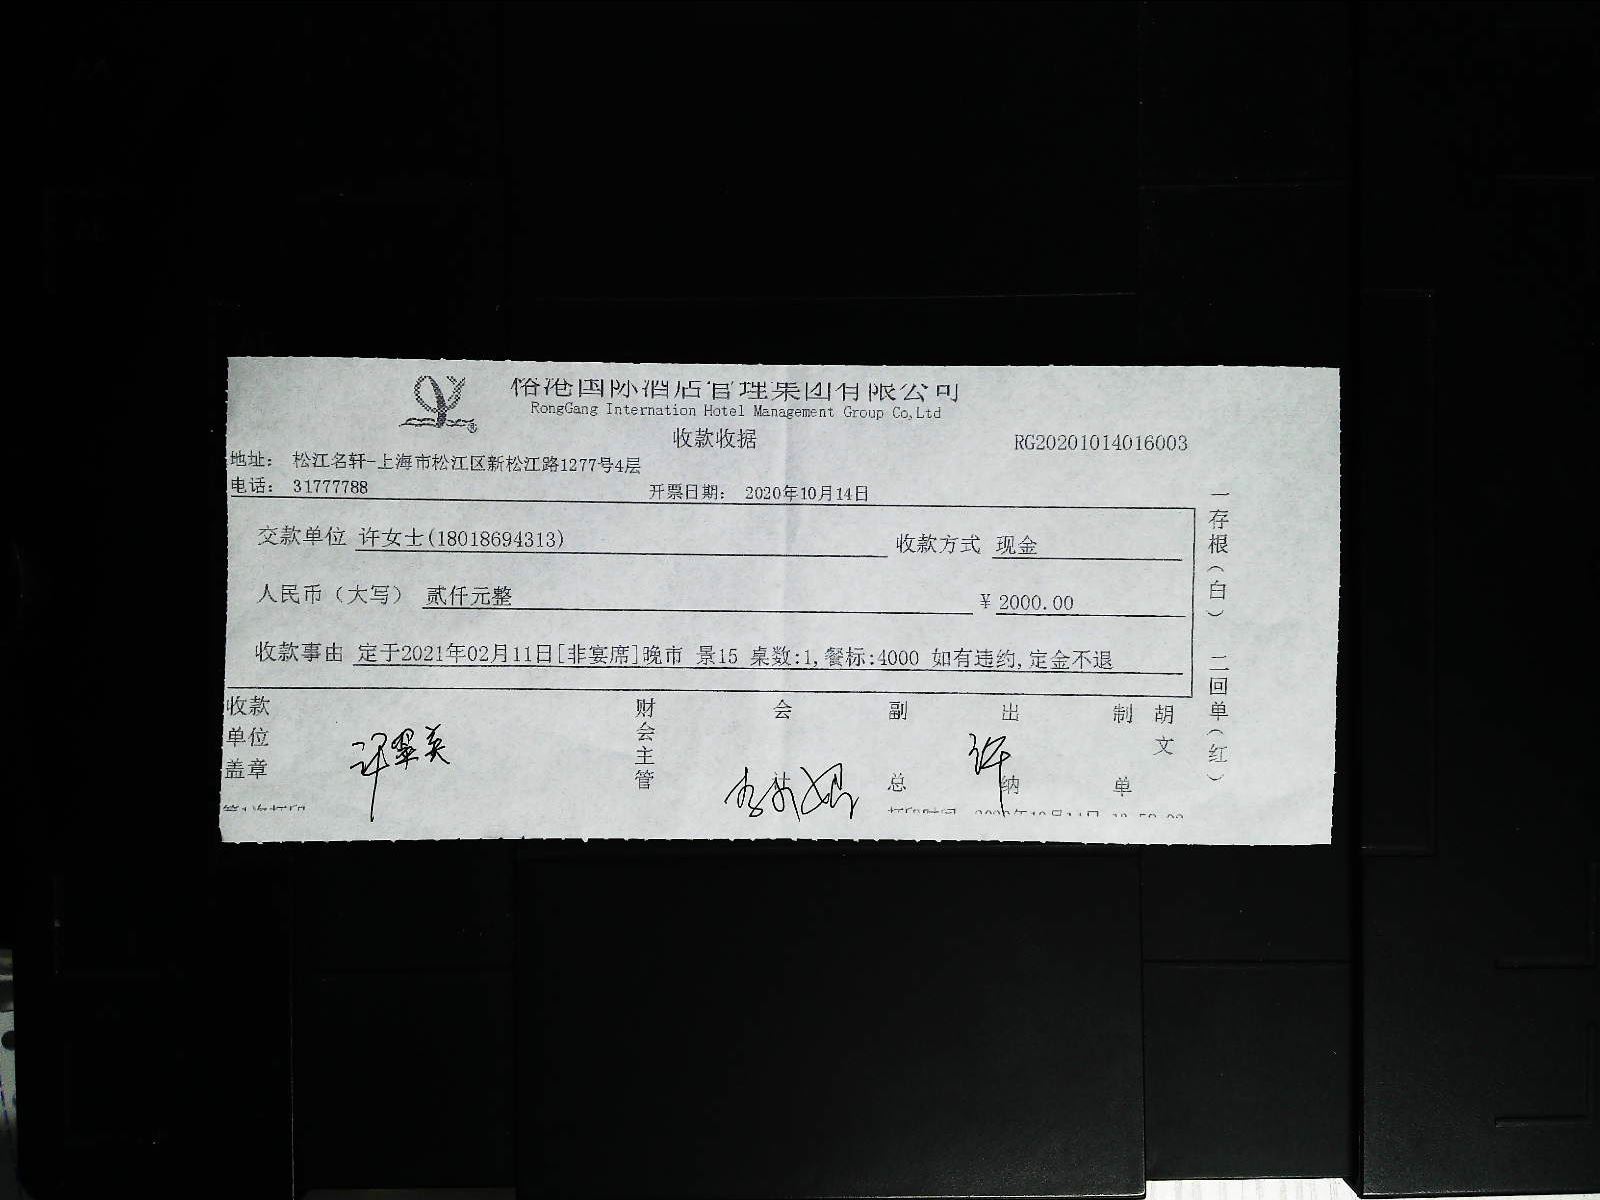 俗港国际酒店管理集团有限公司
RongGang Internation Hotel Management Group Co,Ltd
收款收据
RG20201014016003
地址： 松江名轩-上海市松江区新松江路1277号4层
电话： 31777788
开票日期： 2020年10月14日
交款单位 许女士(18018694313)
收款方式 现金
人民币（大写） 贰仟元整
¥ 2000.00
收款事由 定于2021年02月11日[非宴席]晚市 景15 桌数:1,餐标:4000 如有违约,定金不退
收款单位盖章
许翠英
财会主管
会计
副总
出纳
许
制单
胡文
一存根（白） 二回单（红）